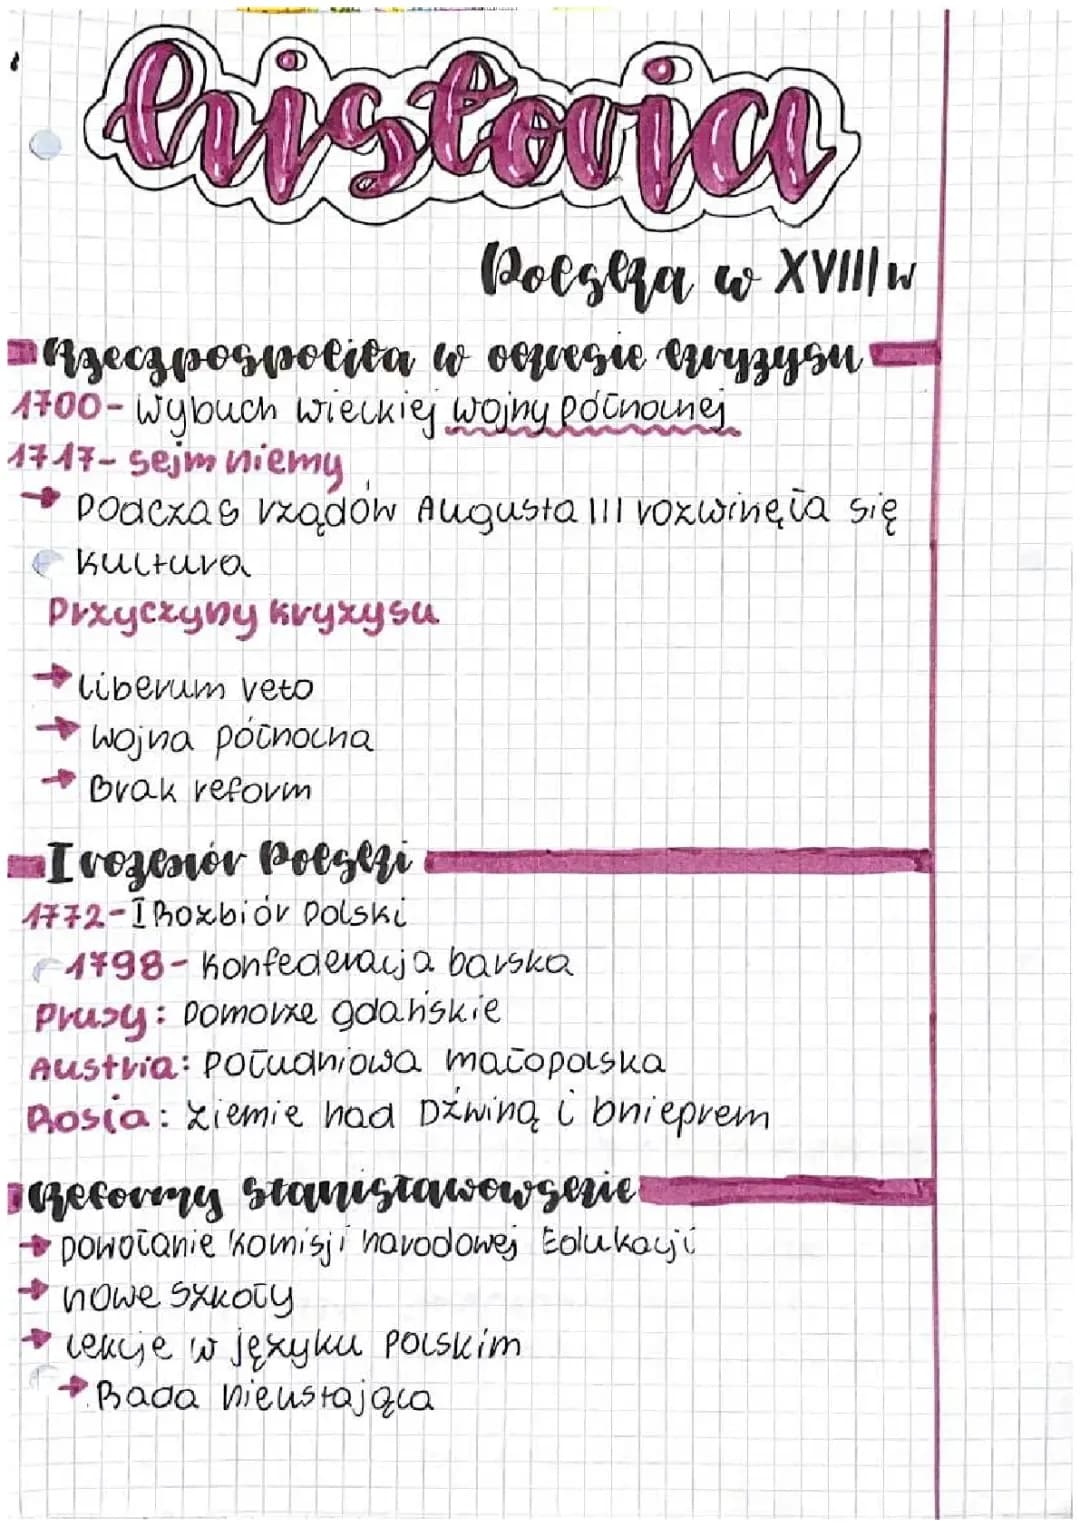 historia
Polska w XVIII w
Rzeczpospolita w okresie kryzysu
1700- Wybuch wielkiej wojny północnej
1717- sejm niemy
→ Podczas rządów Augusta III rozwinęła się
kultura
Przyczyny kryzysu
→ liberum veto
→ wojna północna
→ Brak reform
I rozbiór Polski
1772- I Rozbiór Polski
1798- Konfederacja barska
Prusy: Pomorze gdańskie
Austria: Południowa małopolska
Rosja: Ziemie nad Dźwiną i Dnieprem
Reformy stanisławowskie
→ powołanie Komisji narodowej Edukacji
→ nowe szkoły
→ lekcje w języku polskim
→ Rada nieustająca